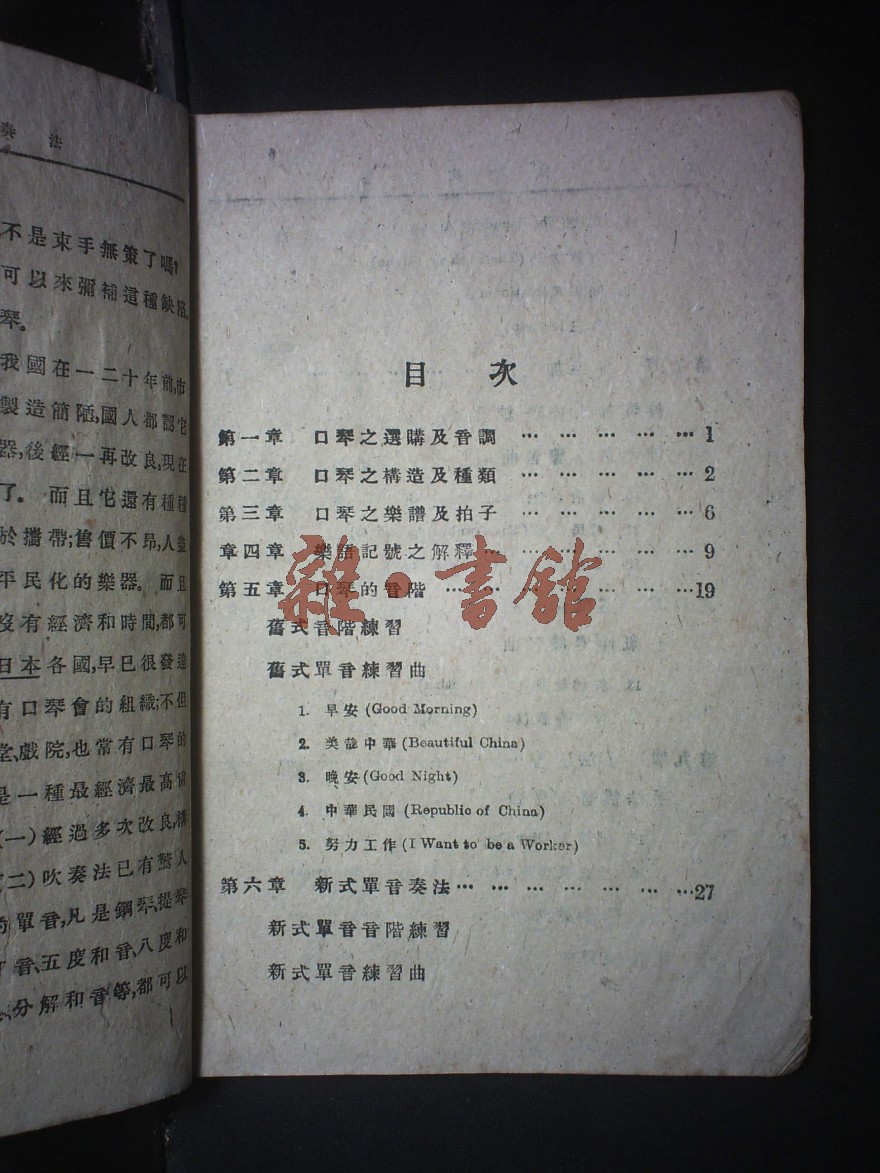 奏法
不是束手無策了嗎？
可以來彌補這種缺陷，
琴。
我國在一二十年前，市
製造簡陋，國人都認它
器，後經一再改良，現在
了。而且它還有種種
於攜帶；售價不昂，人盡
平民化的樂器。而且
沒有經濟和時間，都可
日本各國，早已很發達
有口琴會的組織；不但
堂、戲院，也常有口琴的
是一種最經濟最高尙
(一)經過多次改良，構
(二)吹奏法已有驚人
的單音，凡是鋼琴、提琴
音、五度和音、八度和
、分解和音等，都可以
目次
第一章 口琴之選購及音調 … … … … … … 1
第二章 口琴之構造及種類 … … … … … … 2
第三章 口琴之樂譜及拍子 … … … … … … 6
章四章 樂語記號之解釋 … … … … … … 9
第五章 口琴的音階 … … … … … … … 19
舊式音階練習
舊式單音練習曲
1. 早安 (Good Morning)
2. 美哉中華 (Beautiful China)
3. 晚安 (Good Night)
4. 中華民國 (Republic of China)
5. 努力工作 (I Want to be a Worker)
第六章 新式單音奏法 … … … … … … … 27
新式單音音階練習
新式單音練習曲
雜·書館